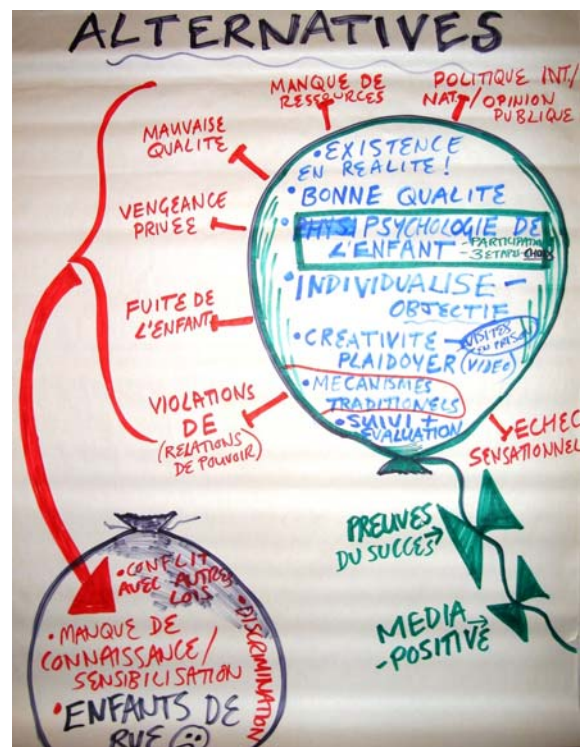 ALTERNATIVES
MANQUE DE
RESSOURCES
POLITIQUE INT./
NAT./OPINION
PUBLIQUE
MAUVAISE
QUALITE
VENGEANCE
PRIVEE
FUITE DE
L'ENFANT
VIOLATIONS
DE
(RELATIONS
DE POUVOIR)
• EXISTENCE
EN REALITE!
• BONNE QUALITE
• PSYCHOLOGIE DE
L'ENFANT - PARTICIPATION
- 3 ETAPES
• INDIVIDUALISE -
OBJECTIF
• CREATIVITE - VISITES
EN PRISON
PLAIDOYER (VIDEO)
• MECANISMES
TRADITIONELS
• SUIVI +
EVALUATION
ECHEC
SENSATIONNEL
PREUVES
DU SUCCES
MEDIA
-POSITIVE
• CONFLIT
AVEC AUTRES
LOIS
• DISCRIMINATION
• MANQUE DE
CONNAISSANCE/
SENSIBILISATION
• ENFANTS DE
RUE